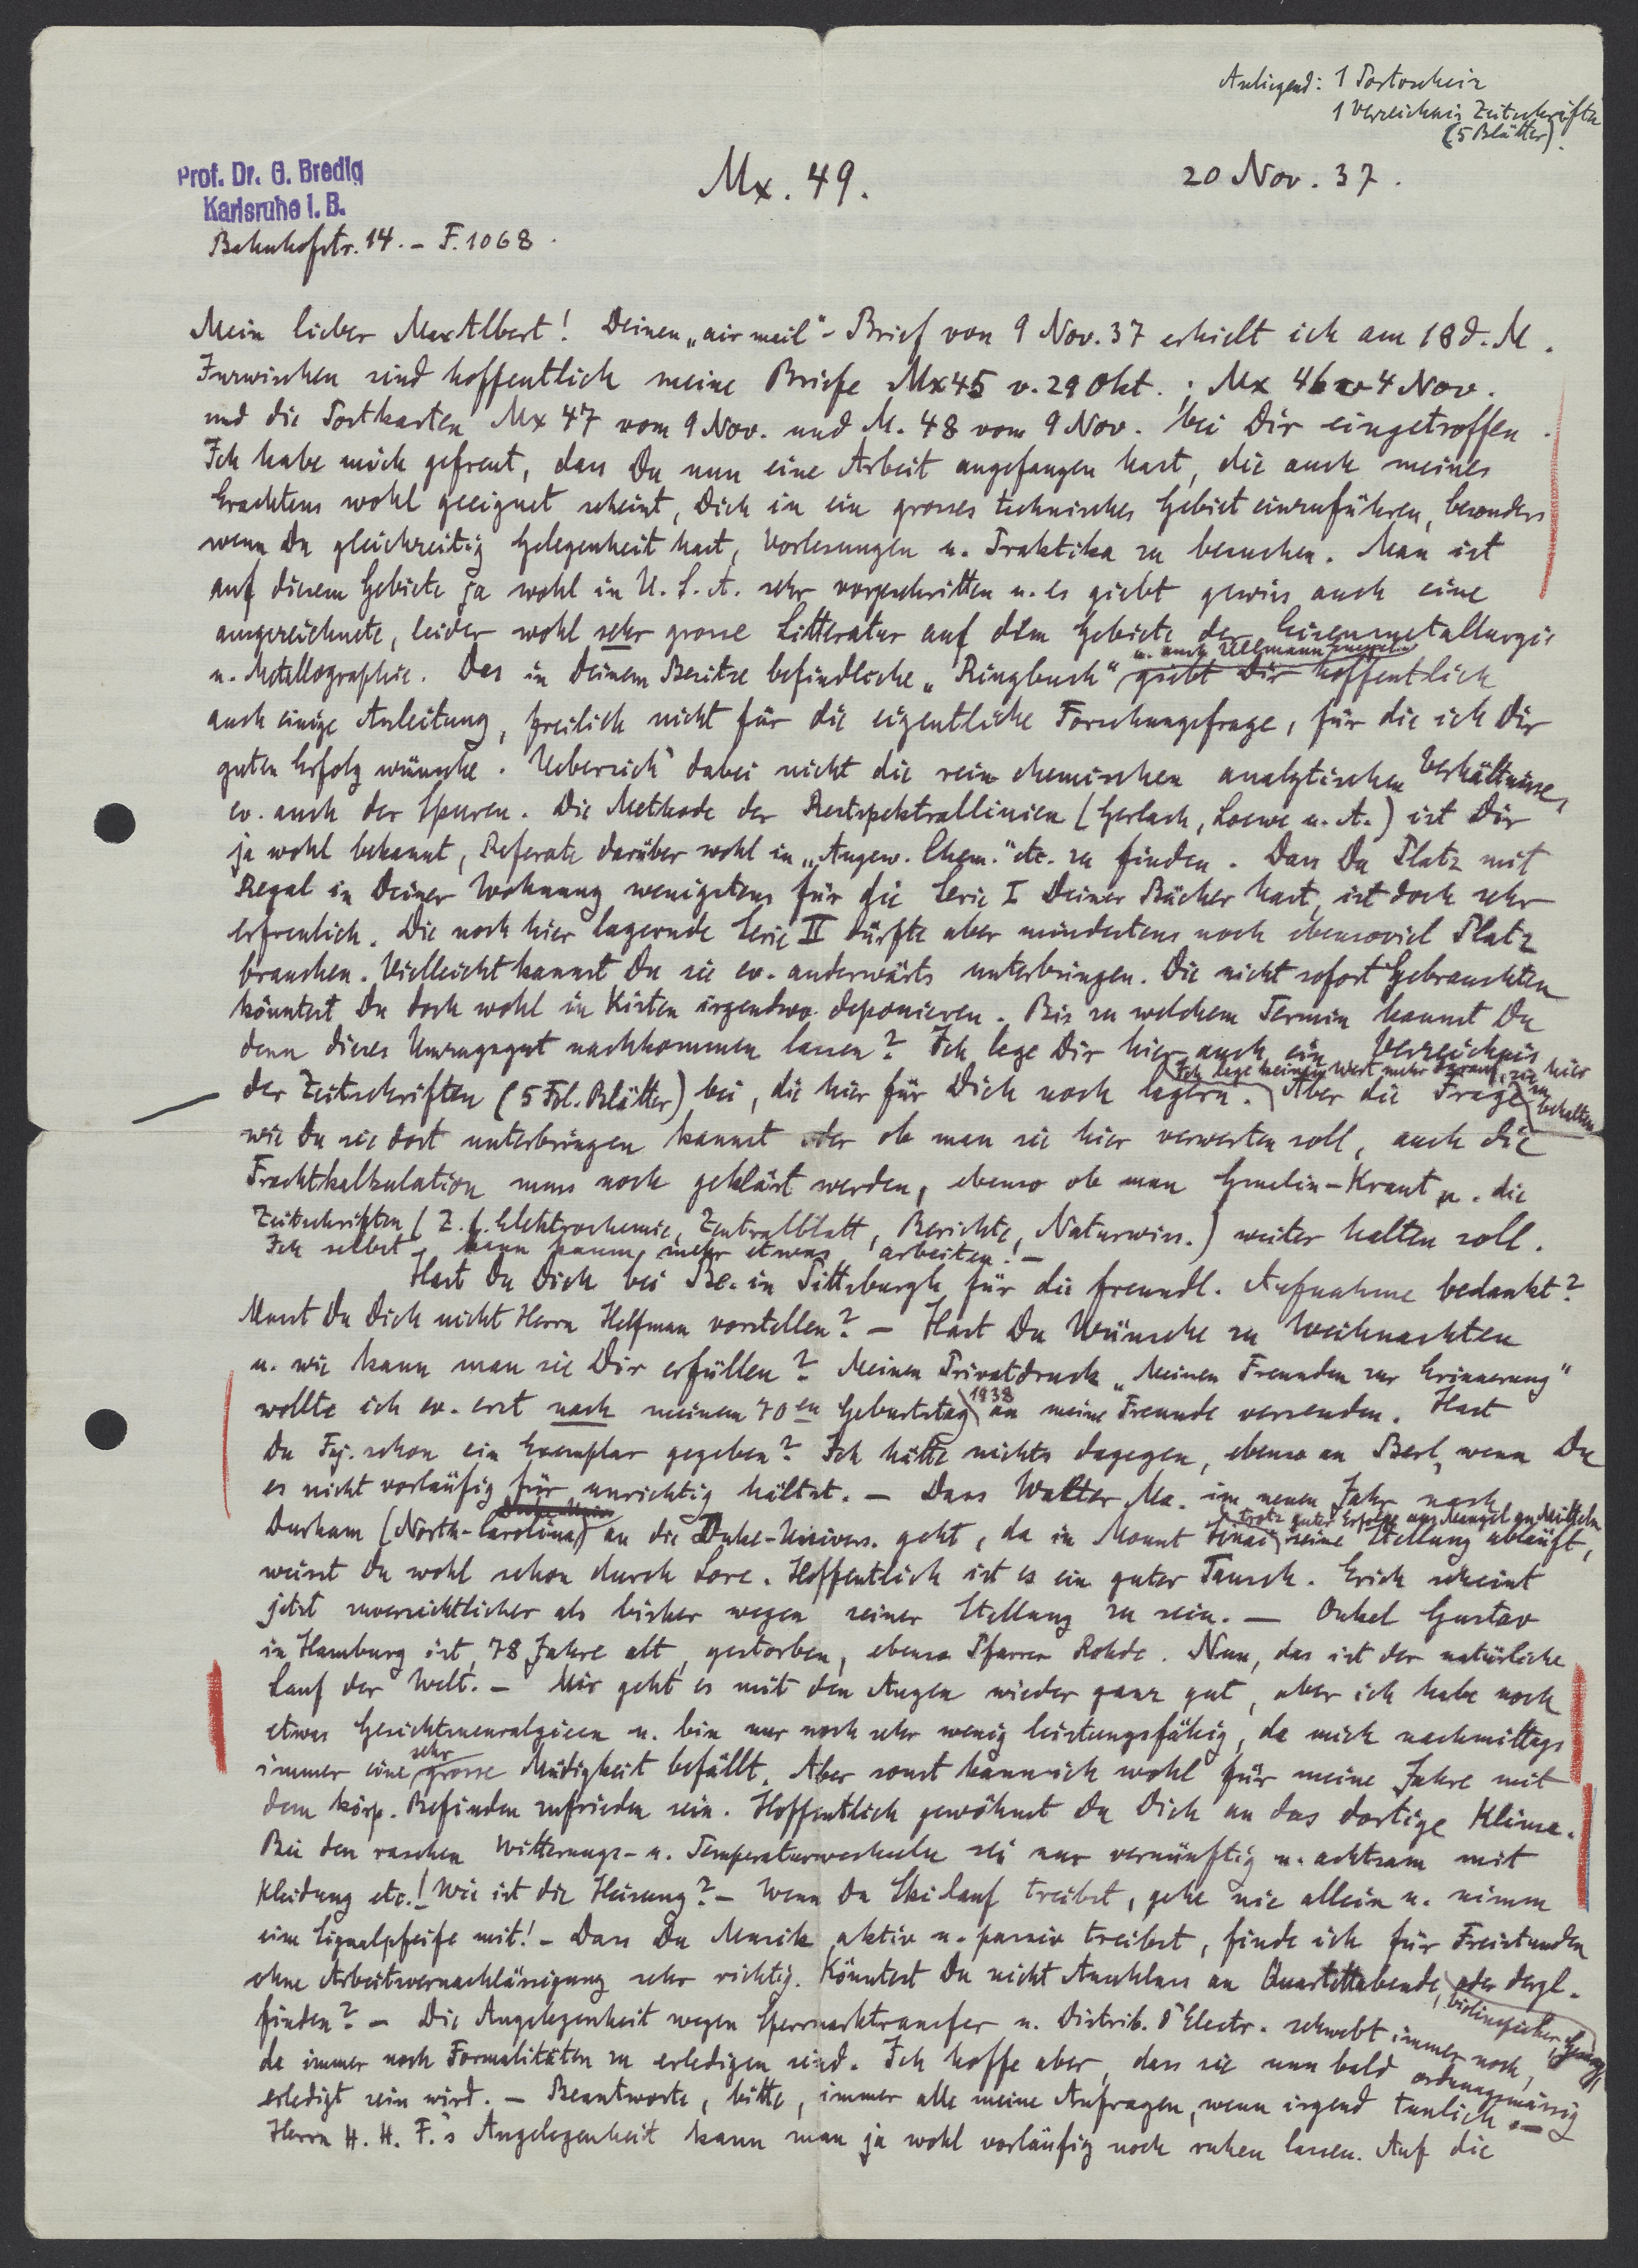 Anliegend: 1 Portoschein
1 Verzeichnis Zeitschriften
(5 Blätter).
Prof. Dr. G. Bredig
Karlsruhe i. B.
Bahnhofstr. 14. - F. 1068.
Mx. 49.
20 Nov. 37.
Mein lieber Max Albert! Deinen „air mail"-Brief von 9 Nov. 37 erhielt ich am 18 d. M.
Inzwischen sind hoffentlich meine Briefe Mx 45 v. 29 Okt.; Mx 46 v 4 Nov.
und die Postkarten Mx 47 vom 9 Nov. und M. 48 vom 9 Nov. bei Dir eingetroffen.
Ich habe mich gefreut, dass Du nun eine Arbeit angefangen hast, die auch meines
Erachtens wohl geeignet scheint, Dich in ein grosses technisches Gebiet einzuführen, besonders
wenn Du gleichzeitig Gelegenheit hast, Vorlesungen u. Praktika zu besuchen. Man ist
auf diesem Gebiete ja wohl in U. S. A. sehr vorgeschritten u. es giebt gewiss auch eine
ausgezeichnete, leider wohl sehr grosse Litteratur auf dem Gebiete der Eisenmetallurgie
u. Metallographie. Das in Deinem Besitze befindliche „Ringbuch" giebt Dir hoffentlich
u. auch Ullmann
auch einige Anleitung, freilich nicht für die eigentliche Forschungsfrage, für die ich Dir
guten Erfolg wünsche. Uebersieh dabei nicht die rein chemischen analytischen Verhältnisse,
ev. auch der Spuren. Die Methode der Restspektrallinien (Gerlach, Loewe u. A.) ist Dir
ja wohl bekannt, Referate darüber wohl in „Angew. Chem." etc. zu finden. Dass Du Platz mit
Regal in Deiner Wohnung wenigstens für die Serie I Deiner Bücher hast, ist doch sehr
erfreulich. Die noch hier lagernde Serie II dürfte aber mindestens noch ebensoviel Platz
brauchen. Vielleicht kannst Du sie ev. anderwärts unterbringen. Die nicht sofort Gebrauchten
könntest Du doch wohl in Kisten irgendwo deponieren. Bis zu welchem Termin kannst Du
denn dieses Umzugsgut nachkommen lassen? Ich lege Dir hier auch ein Verzeichnis
der Zeitschriften (5 Fol. Blätter) bei, die hier für Dich noch lagern. Aber die Frage
Ich lege keinen Wert mehr darauf, sie hier zu behalten
wie Du sie dort unterbringen kannst oder ob man sie hier verwerten soll, auch die
Frachtkalkulation muss noch geklärt werden, ebenso ob man Gmelin-Kraut u. die
Zeitschriften (Z. f. Elektrochemie, Zentralblatt, Berichte, Naturwiss.) weiter halten soll.
Ich selbst kann kaum mehr etwas arbeiten! -
Hast Du Dich bei Be. in Pittsburgh für die freundl. Aufnahme bedankt?
Musst Du Dich nicht Herrn Helfman vorstellen? - Hast Du Wünsche zu Weihnachten
u. wie kann man sie Dir erfüllen? Meinen Privatdruck „Meinen Freunden zur Erinnerung"
wollte ich ev. erst nach meinem 70en Geburtstag 1938 an meine Freunde versenden. Hast
Du Faj. schon ein Exemplar gegeben? Ich hätte nichts dagegen, ebenso an Berl, wenn Du
es nicht vorläufig für unrichtig hältst. - Dass Walter Ma. im neuen Jahr nach
Durham (North-Carolina) an die Duke-Univers. geht, da in Mount Sinai seine Stellung abläuft,
trotz guter Erfolge aus Mangel an Mitteln
weisst Du wohl schon durch Lore. Hoffentlich ist es ein guter Tausch. Erich scheint
jetzt zuversichtlicher als bisher wegen seiner Stellung zu sein. - Onkel Gustav
in Hamburg ist, 78 Jahre alt, gestorben, ebenso Pfarrer Rohde. Nun, das ist der natürliche
Lauf der Welt. - Mir geht es mit den Augen wieder ganz gut, aber ich habe noch
etwas Gesichtsneuralgieen u. bin nur noch sehr wenig leistungsfähig, da mich nachmittags
immer eine sehr grosse Müdigkeit befällt. Aber sonst kann ich wohl für meine Jahre mit
dem körp. Befinden zufrieden sein. Hoffentlich gewöhnst Du Dich an das dortige Klima.
Bei den raschen Witterungs- u. Temperaturwechseln sei nur vernünftig u. achtsam mit
Kleidung etc.! Wie ist die Heizung? - Wenn Du Skilauf treibst, gehe nie allein u. nimm
eine Signalpfeife mit! - Dass Du Musik aktiv u. passiv treibst, finde ich für Freistunden
ohne Arbeitsvernachlässigung sehr richtig. Könntest Du nicht Anschluss an Quartettabende, oder dergl.
finden? - Die Angelegenheit wegen Sperrmarktransfer u. Distrib. d'Electr. schwebt immer noch,
da immer noch Formalitäten zu erledigen sind. Ich hoffe aber, dass sie nun bald ordnungsmässig
erledigt sein wird. - Beantworte, bitte, immer alle meine Anfragen, wenn irgend tunlich. -
Herrn H. H. F.'s Angelegenheit kann man ja wohl vorläufig noch ruhen lassen. Auf die